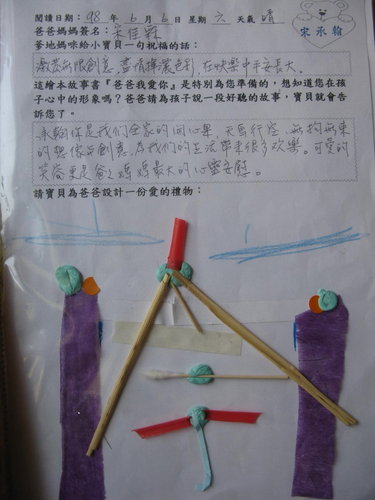 閱讀日期：98 年 6 月 6 日 星期 六 天氣 晴
宋承翰
爸爸媽媽簽名：宋佳霖
爹地媽咪給小寶貝一句祝福的話：
激蕩無限創意，盡情揮灑色彩，在快樂中平安長大。
這繪本故事書『爸爸我愛你』是特別為您準備的，想知道您在孩
子心中的形象嗎？爸爸請為孩子說一段好聽的故事，寶貝就會告
訴您了。
承翰你是我們全家的開心果，天馬行空、無拘無束
的想像與創意，為我們的生活帶來很多歡樂。可愛的
笑容更是爸爸媽媽最大的心靈安慰。
請寶貝為爸爸設計一份愛的禮物：